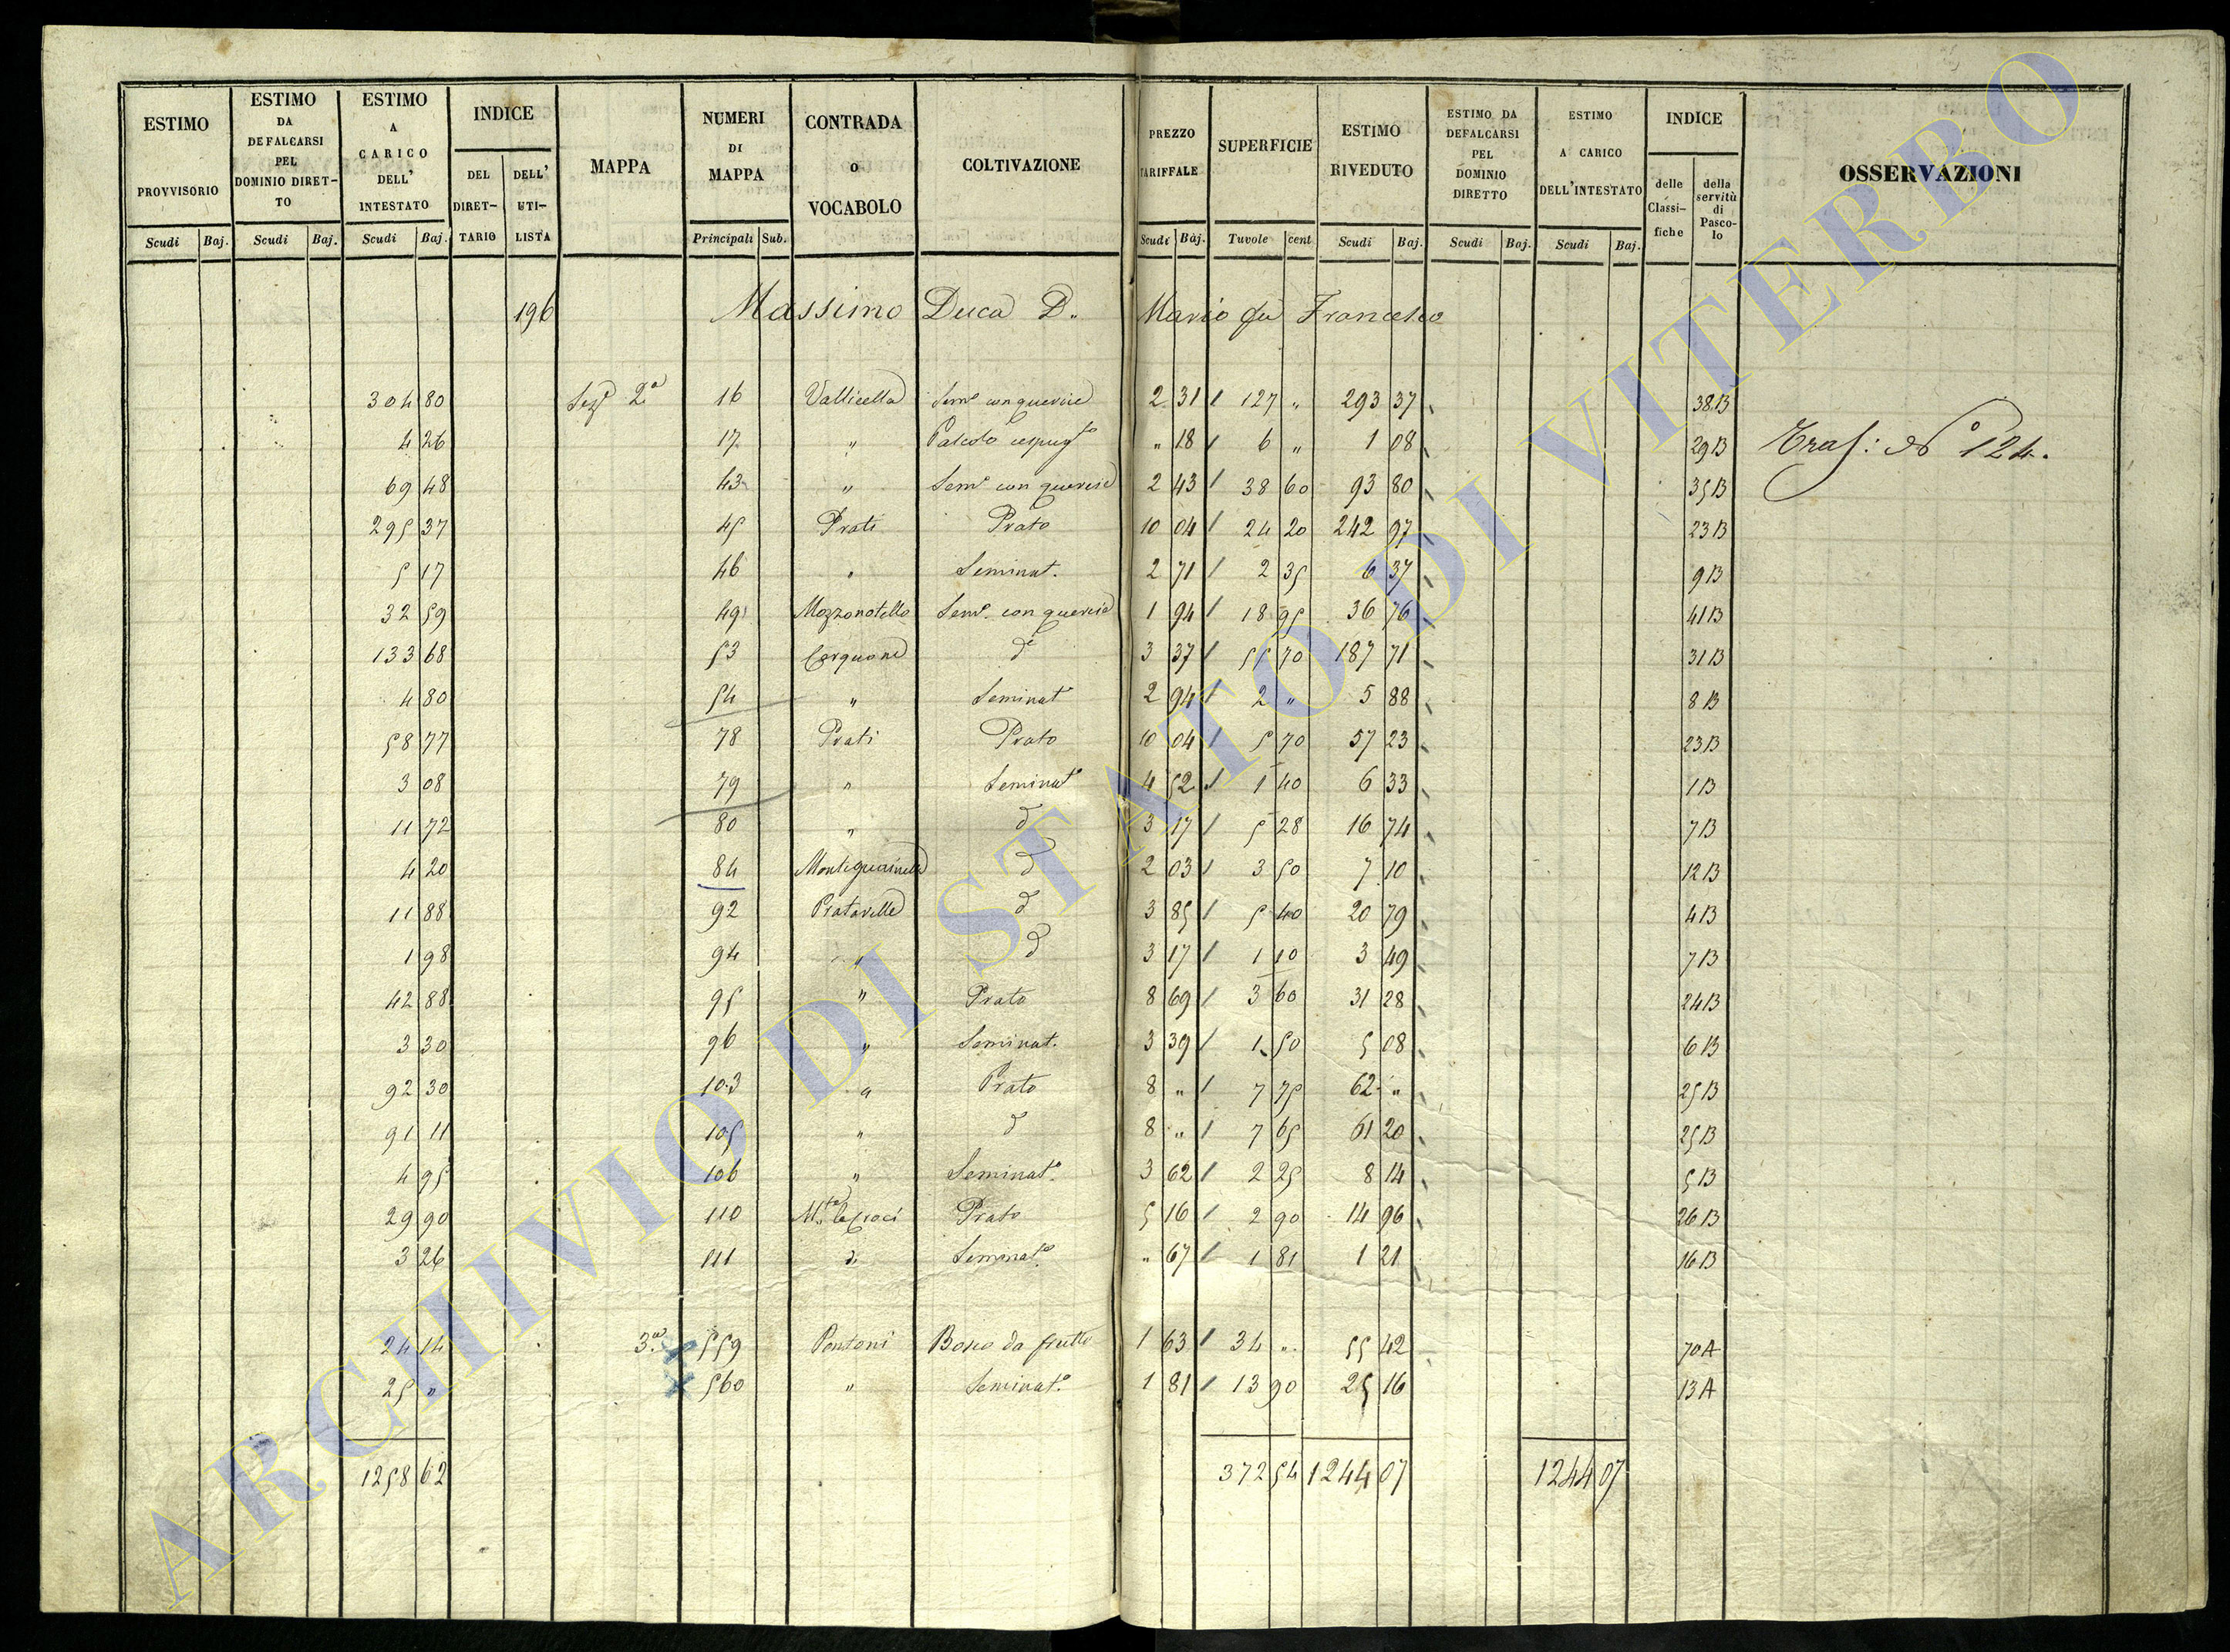 ESTIMO PROVVISORIO Scudi Baj.
ESTIMO DA DEFALCARSI PEL DOMINIO DIRET-TO Scudi Baj.
ESTIMO A CARICO DELL' INTESTATO Scudi Baj.
INDICE DEL DIRET-TARIO DELL' UTI-LISTA
MAPPA
NUMERI DI MAPPA Principali Sub.
CONTRADA o VOCABOLO
COLTIVAZIONE
PREZZO TARIFFALE Scudi Baj.
SUPERFICIE Tuvole cent
ESTIMO RIVEDUTO Scudi Baj.
ESTIMO DA DEFALCARSI PEL DOMINIO DIRETTO Scudi Baj.
ESTIMO A CARICO DELL'INTESTATO Scudi Baj.
INDICE delle Classi-fiche della servitù di Pasco-lo
OSSERVAZIONI
196 Massimo Duca D. Mario fu Francesco
304 80 Sezᵉ 2ª 16 Vallicella Semᵒ con quercie 2 31 127 " 293 37 38B
4 26 17 " Pascolo cespugᵗᵒ " 18 6 " 1 08 29B Tras: al Nº 124.
69 48 43 " Semᵒ con quercie 2 43 38 60 93 80 35B
295 37 45 Prati Prato 10 04 24 20 242 97 23B
5 17 46 " Seminat. 2 71 2 35 6 37 9B
32 59 49 Mozzonotello Semᵒ. con quercie 1 94 18 95 36 76 41B
133 68 53 Corguone dᵒ 3 37 55 70 187 71 31B
4 80 54 " Seminatᵒ 2 94 2 " 5 88 8B
58 77 78 Prati Prato 10 04 5 70 57 23 23B
3 08 79 " Seminatᵒ 4 52 1 40 6 33 1B
11 72 80 " d 3 17 5 28 16 74 7B
4 20 84 d 2 03 3 50 7 10 12B
11 88 92 Pratarelle d 3 85 5 40 20 79 4B
1 98 94 " d 3 17 1 10 3 49 7B
42 88 95 " Prato 8 69 3 60 31 28 24B
3 30 96 " Seminat. 3 39 1 50 5 08 6B
92 30 103 " Prato 8 " 7 75 62 " 25B
91 11 105 " d 8 " 7 65 61 20 25B
4 95 106 " Seminatᵒ. 3 62 2 25 8 14 5B
29 90 110 Mᵗᵉ le Croci Prato 5 16 2 90 14 96 26B
3 26 111 d. Seminatᵒ. " 67 1 81 1 21 16B
24 14 3ª 559 Pontoni Bosco da frutto 1 63 34 " 55 42 70A
25 " 560 " Seminatᵒ. 1 81 13 90 25 16 13A
1258 62 372 54 1244 07 1244 07
ARCHIVIO DI STATO DI VITERBO